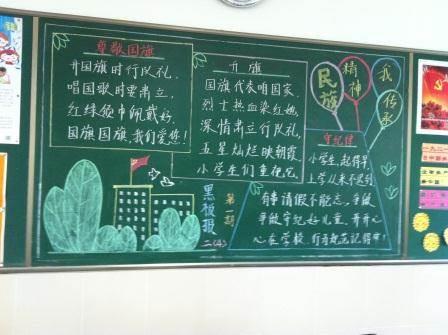 尊敬国旗
升国旗时行队礼,
唱国歌时要肃立,
红绿领巾佩戴好,
国旗国旗,我们爱您!
升旗
国旗代表咱国家,
烈士热血染红她,
深情肃立行队礼,
五星灿烂映朝霞,
小学生们重视它,
民族
精神
我
传承
守纪律
小学生,起得早,
上学从来不迟到
有事请假不能忘,争做
争做守纪好儿童,开开心
心在学校,行为规范记得牢!
黑板报
第一期
二(4)